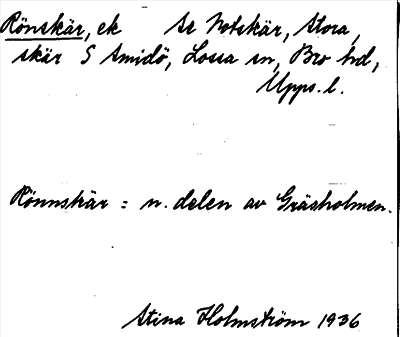 Rönskär, ek Se Notskär, Stora,
skär S Amidö, Lossa sn, Bro hd,
Upps. l.
Rönnskär = n. delen av Gräsholmen.
Stina Holmström 1936